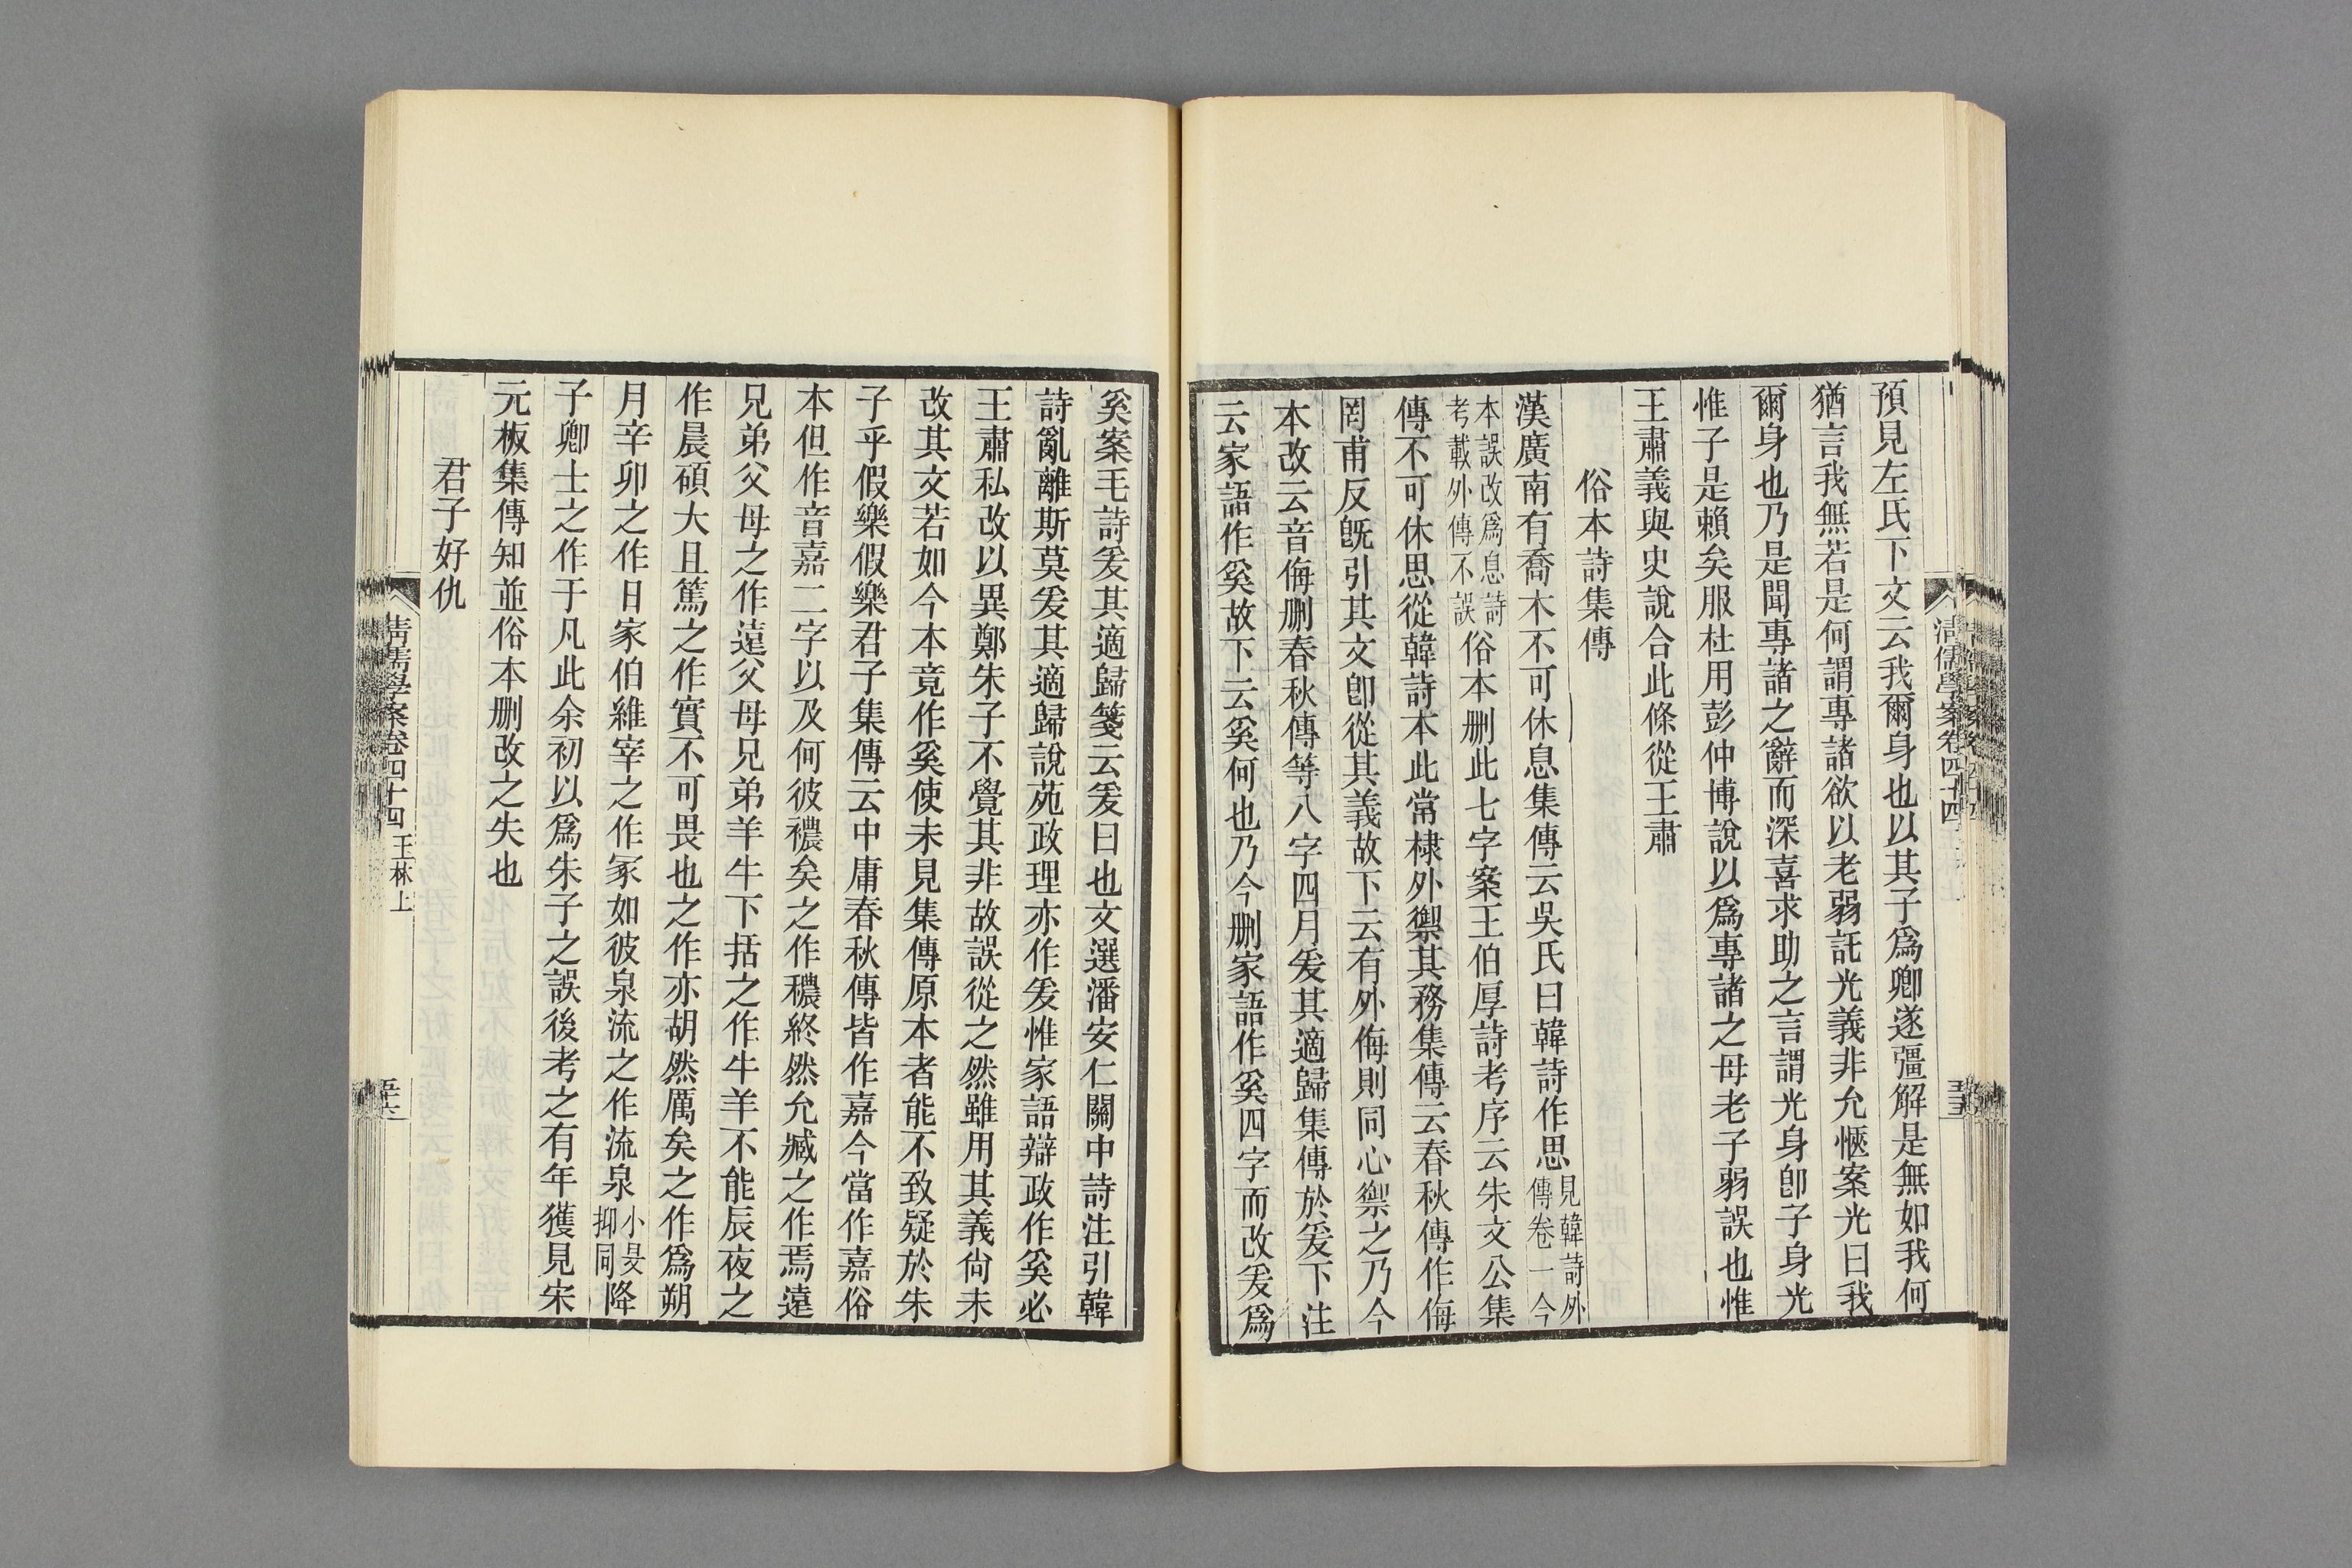 預見左氏下文云我爾身也以其子爲卿遂彊解是無如我何
猶言我無若是何謂專諸欲以老弱託光義非允愜案光曰我
爾身也乃是聞專諸之辭而深喜求助之言謂光身卽子身光
惟子是賴矣服杜用彭仲博說以爲專諸之母老子弱誤也惟
王肅義與史說合此條從王肅
俗本詩集傳
漢廣南有喬木不可休息集傳云吳氏曰韓詩作思見韓詩外傳卷一今
本誤改爲息詩考載外傳不誤俗本刪此七字案王伯厚詩考序云朱文公集
傳不可休思從韓詩本此常棣外禦其務集傳云春秋傳作侮
罔甫反旣引其文卽從其義故下云有外侮則同心禦之乃今
本改云音侮刪春秋傳等八字四月爰其適歸集傳於爰下注
云家語作奚故下云奚何也乃今刪家語作奚四字而改爰爲
奚案毛詩爰其適歸箋云爰曰也文選潘安仁關中詩注引韓
詩亂離斯莫爰其適歸說苑政理亦作爰惟家語辯政作奚必
王肅私改以異鄭朱子不覺其非故誤從之然雖用其義尙未
改其文若如今本竟作奚使未見集傳原本者能不致疑於朱
子乎假樂假樂君子集傳云中庸春秋傳皆作嘉今當作嘉俗
本但作音嘉二字以及何彼襛矣之作穠終然允臧之作焉遠
兄弟父母之作遠父母兄弟羊牛下括之作牛羊不能辰夜之
作晨碩大且篤之作實不可畏也之作亦胡然厲矣之作爲朔
月辛卯之作日家伯維宰之作冢如彼泉流之作流泉小旻抑同降
子卿士之作于凡此余初以爲朱子之誤後考之有年獲見宋
元板集傳知並俗本刪改之失也
君子好仇
清儒學案卷四十四 玉林上
五十六
清儒學案卷四十四
五十五